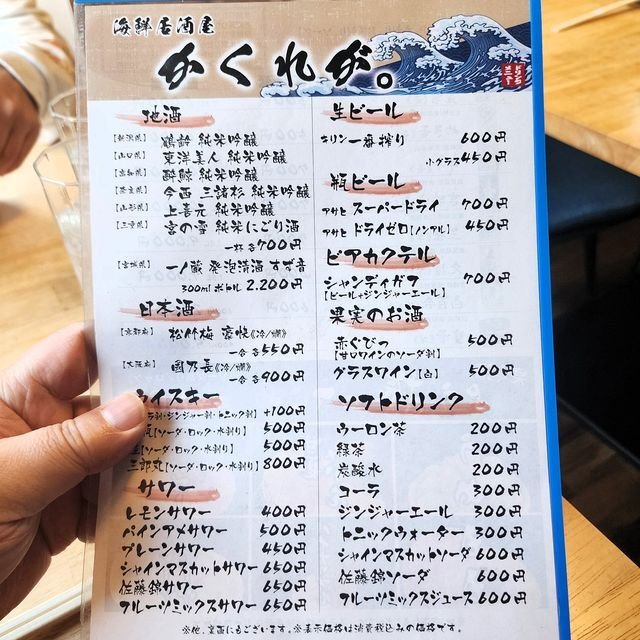 海鮮居酒屋
かくれが。
地酒
【新潟県】鶴齢 純米吟醸
【山口県】東洋美人 純米吟醸
【高知県】酔鯨 純米吟醸
【奈良県】今西 三諸杉 純米吟醸
【山形県】上喜元 純米吟醸
【三重県】宮の雪 純米にごり酒
一杯各700円
【宮城県】一ノ蔵 発泡清酒 すず音
300mlボトル 2.200円
日本酒
【京都府】松竹梅 豪快《冷/燗》
一合各550円
【大阪府】國乃長《冷/燗》
一合各900円
ウイスキー
割・ジンジャー割・トニック割】+100円
【ソーダ・ロック・水割り】500円
【ソーダ・ロック・水割り】500円
三郎丸【ソーダ・ロック・水割】800円
サワー
レモンサワー 400円
パインアメサワー 500円
プレーンサワー 450円
シャインマスカットサワー 650円
佐藤錦サワー 650円
フルーツミックスサワー 650円
生ビール
キリン一番搾り 600円
小グラス450円
瓶ビール
アサヒ スーパードライ 700円
アサヒ ドライゼロ【ノンアル】 450円
ビアカクテル
シャンディガフ 700円
【ビール+ジンジャーエール】
果実のお酒
赤ぐびっ 500円
【甘口ワインのソーダ割】
グラスワイン【白】 500円
ソフトドリンク
ウーロン茶 200円
緑茶 200円
炭酸水 200円
コーラ 300円
ジンジャーエール 300円
トニックウォーター 300円
シャインマスカットソーダ 600円
佐藤錦ソーダ 600円
フルーツミックスジュース 600円
※他、裏面にもございます。※表示価格は消費税込みの価格です。